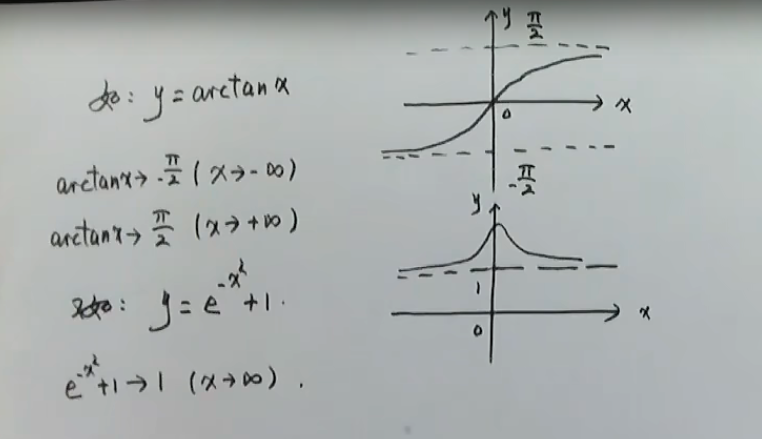 如: y = arctanx
arctanx→ -π/2 (x→-∞)
arctanx→ π/2 (x→+∞)
又如: y = e^{-x²}+1.
e^{-x²}+1→1 (x→∞).
y π/2
0 x
-π/2
y
1
0 x